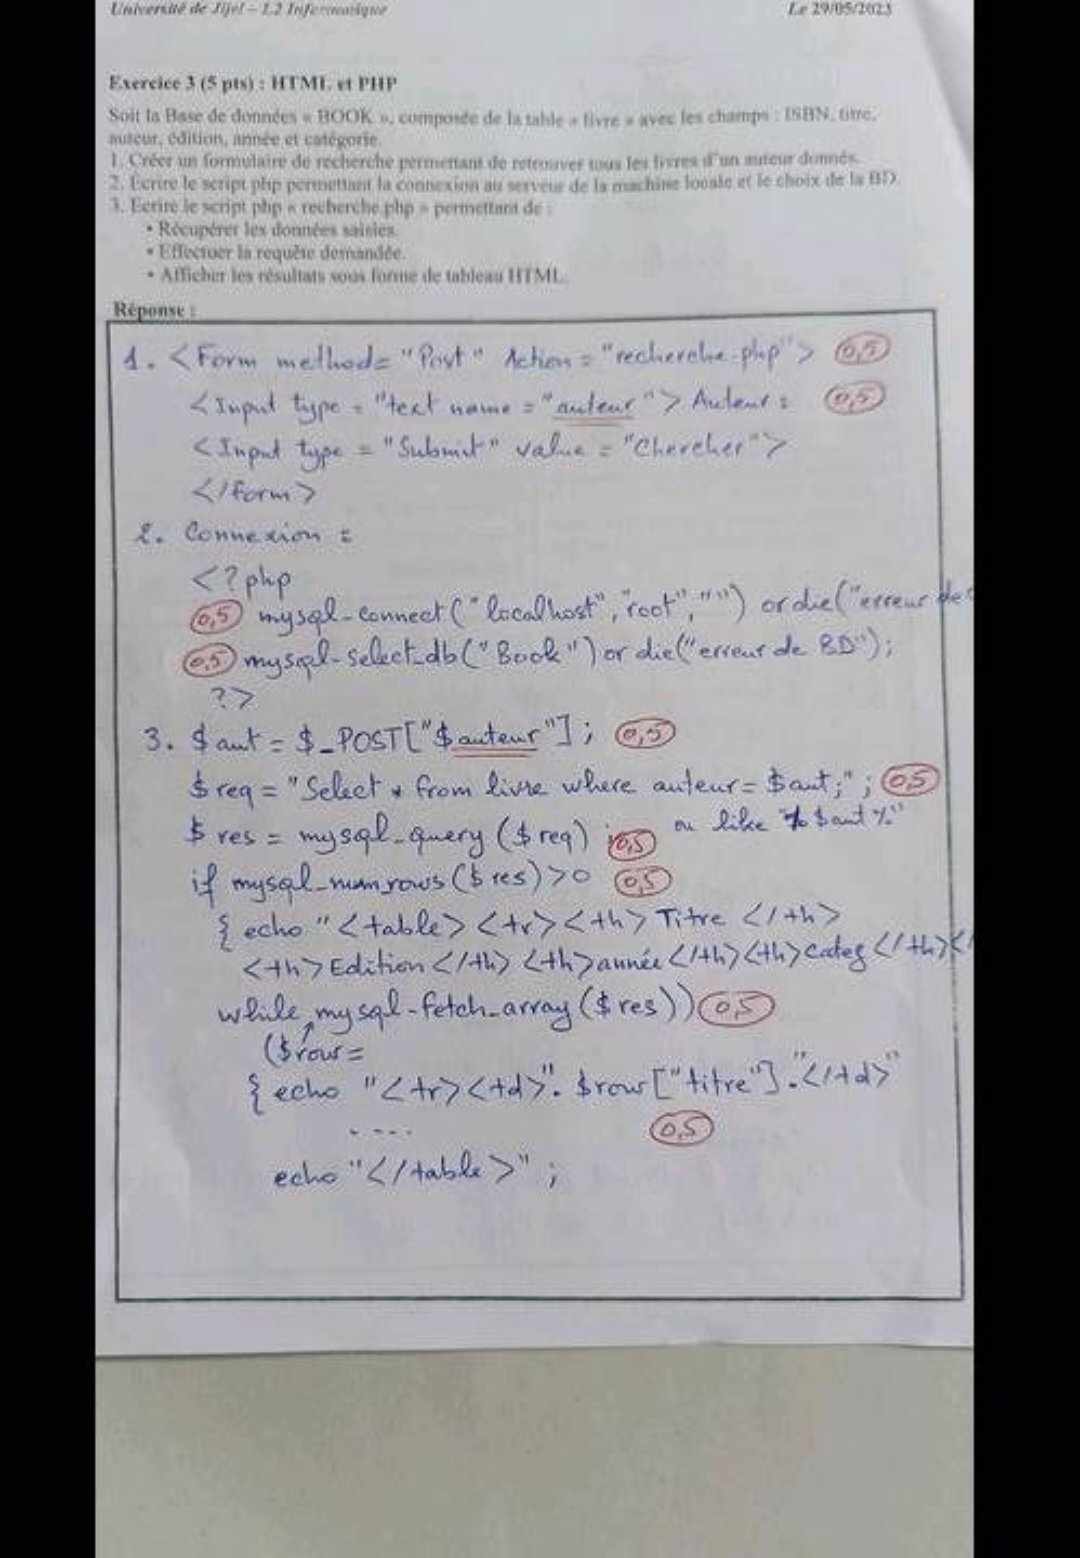 Université de Jijel – L2 Informatique
Le 29/05/2023
Exercice 3 (5 pts) : HTML et PHP
Soit la Base de données « BOOK », composée de la table « livre » avec les champs : ISBN, titre,
auteur, édition, année et catégorie.
1. Créer un formulaire de recherche permettant de retrouver tous les livres d'un auteur donnés.
2. Ecrire le script php permettant la connexion au serveur de la machine locale et le choix de la BD.
3. Ecrire le script php « recherche.php » permettant de :
• Récupérer les données saisies.
• Effectuer la requête demandée.
• Afficher les résultats sous forme de tableau HTML.
Réponse :
1. <Form method= "Post" Action = "recherche.php"> 0,5
<Input type = "text name = "auteur"> Auteur : 0,5
<Input type = "Submit" value = "Chercher">
</form>
2. Connexion :
<?php
0,5 mysql-connect("localhost", "root", "") or die("erreur de
0,5 mysql-select_db("Book") or die("erreur de BD");
?>
3. $aut = $_POST["$auteur"]; 0,5
$req = "Select * from livre where auteur= $aut;" ; 0,5
$res = mysql-query ($req) ; 0,5 ou like "% $aut %"
if mysql-num_rows($res)>0 0,5
{ echo "<table><tr><th> Titre </th>
<th> Edition </th> <th> année </th> <th> Categ </th> </
while mysql-fetch_array($res)) 0,5
($row =
{ echo "<tr><td>". $row["titre"]."</td>"
....
0,5
echo "</table>" ;